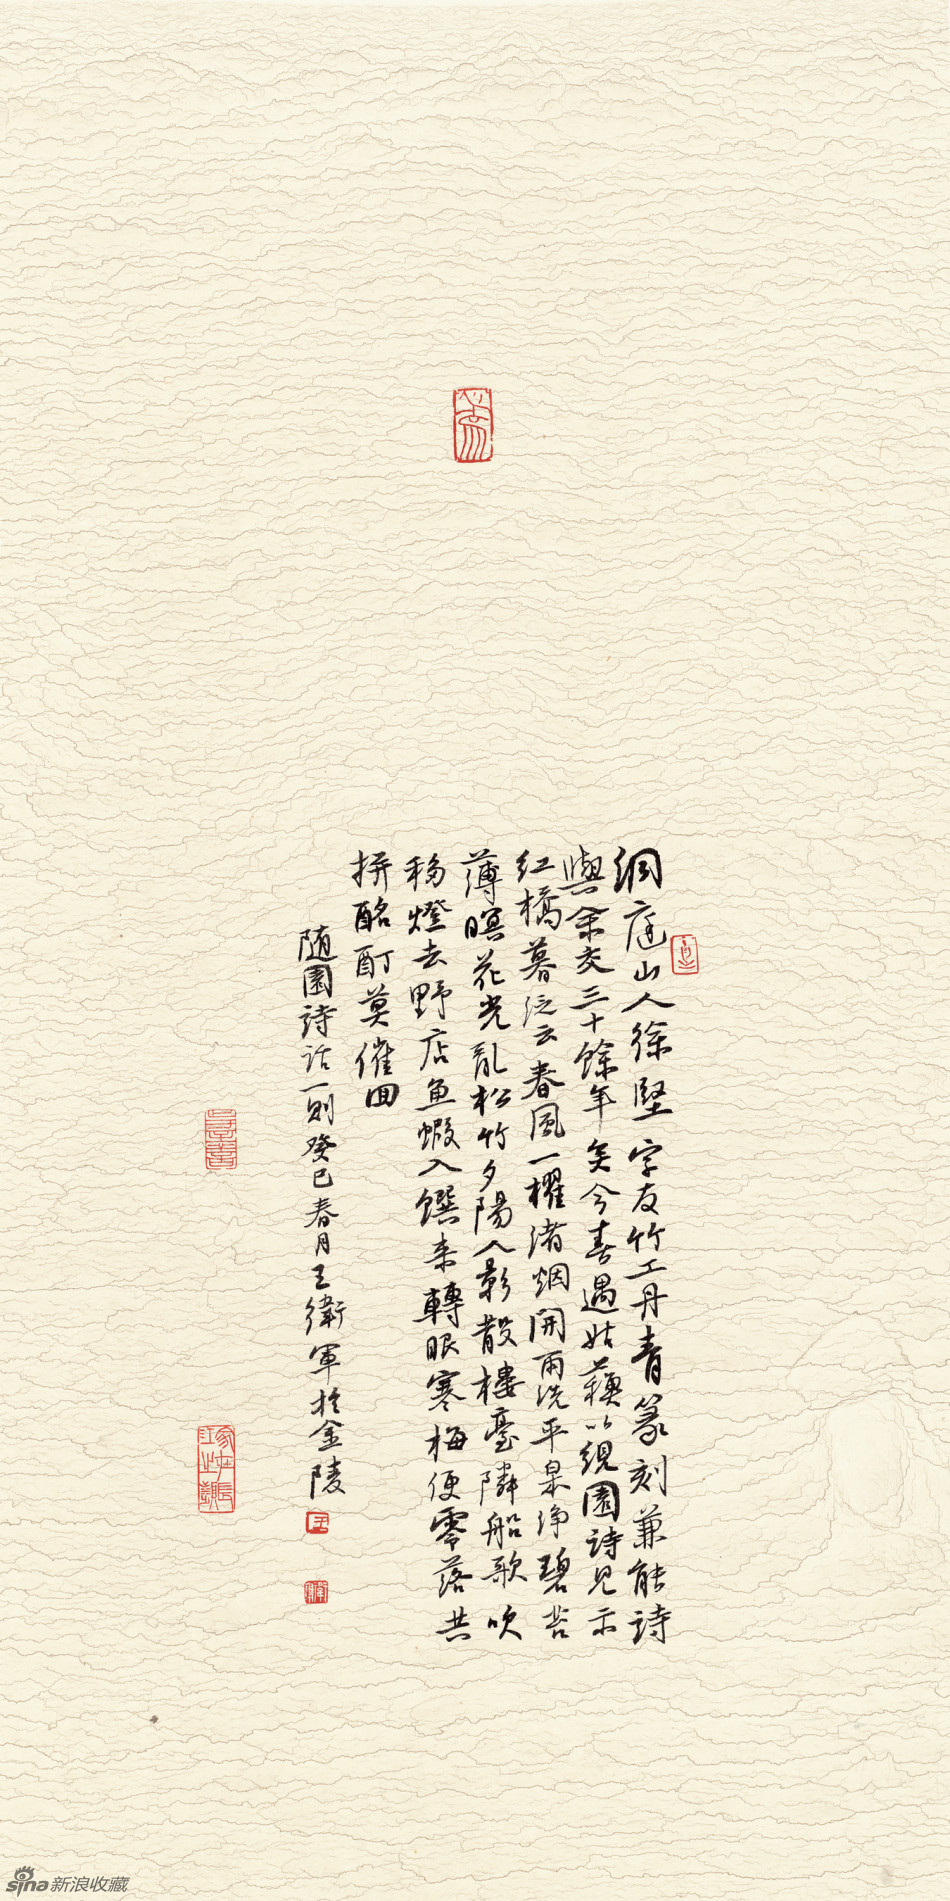 洞庭山人徐堅字友竹工丹青篆刻兼能詩
與余交三十餘年矣今春遇姑蘓以絸園詩見示
紅橋暮泛云春風一櫂渚烟開雨洗平皋净碧苔
薄暝花光亂松竹夕陽人影散樓臺隣船歌吹
移燈去野店魚蝦入饌来轉眼寒梅便零落共
拚酩酊莫催回
随園詩話一則癸巳春月王衛軍於金陵
sina新浪收藏